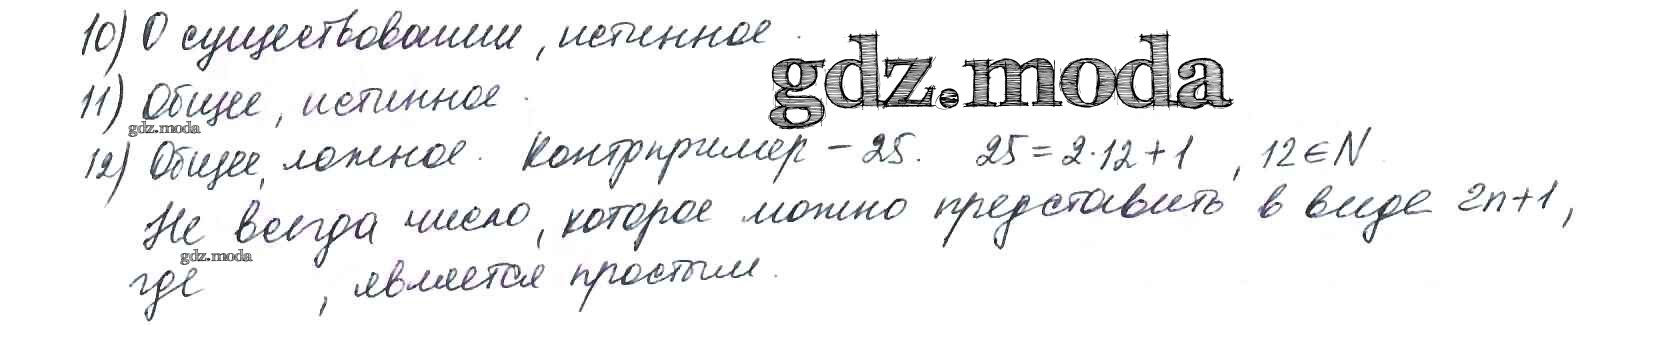 10) О существовании, истинное.
gdz.moda
11) Общее, истинное.
gdz.moda
12) Общее, ложное. Контрпример – 25. 25 = 2·12+1, 12∈N.
Не всегда число, которое можно представить в виде 2n+1,
gdz.moda
где , является простым.